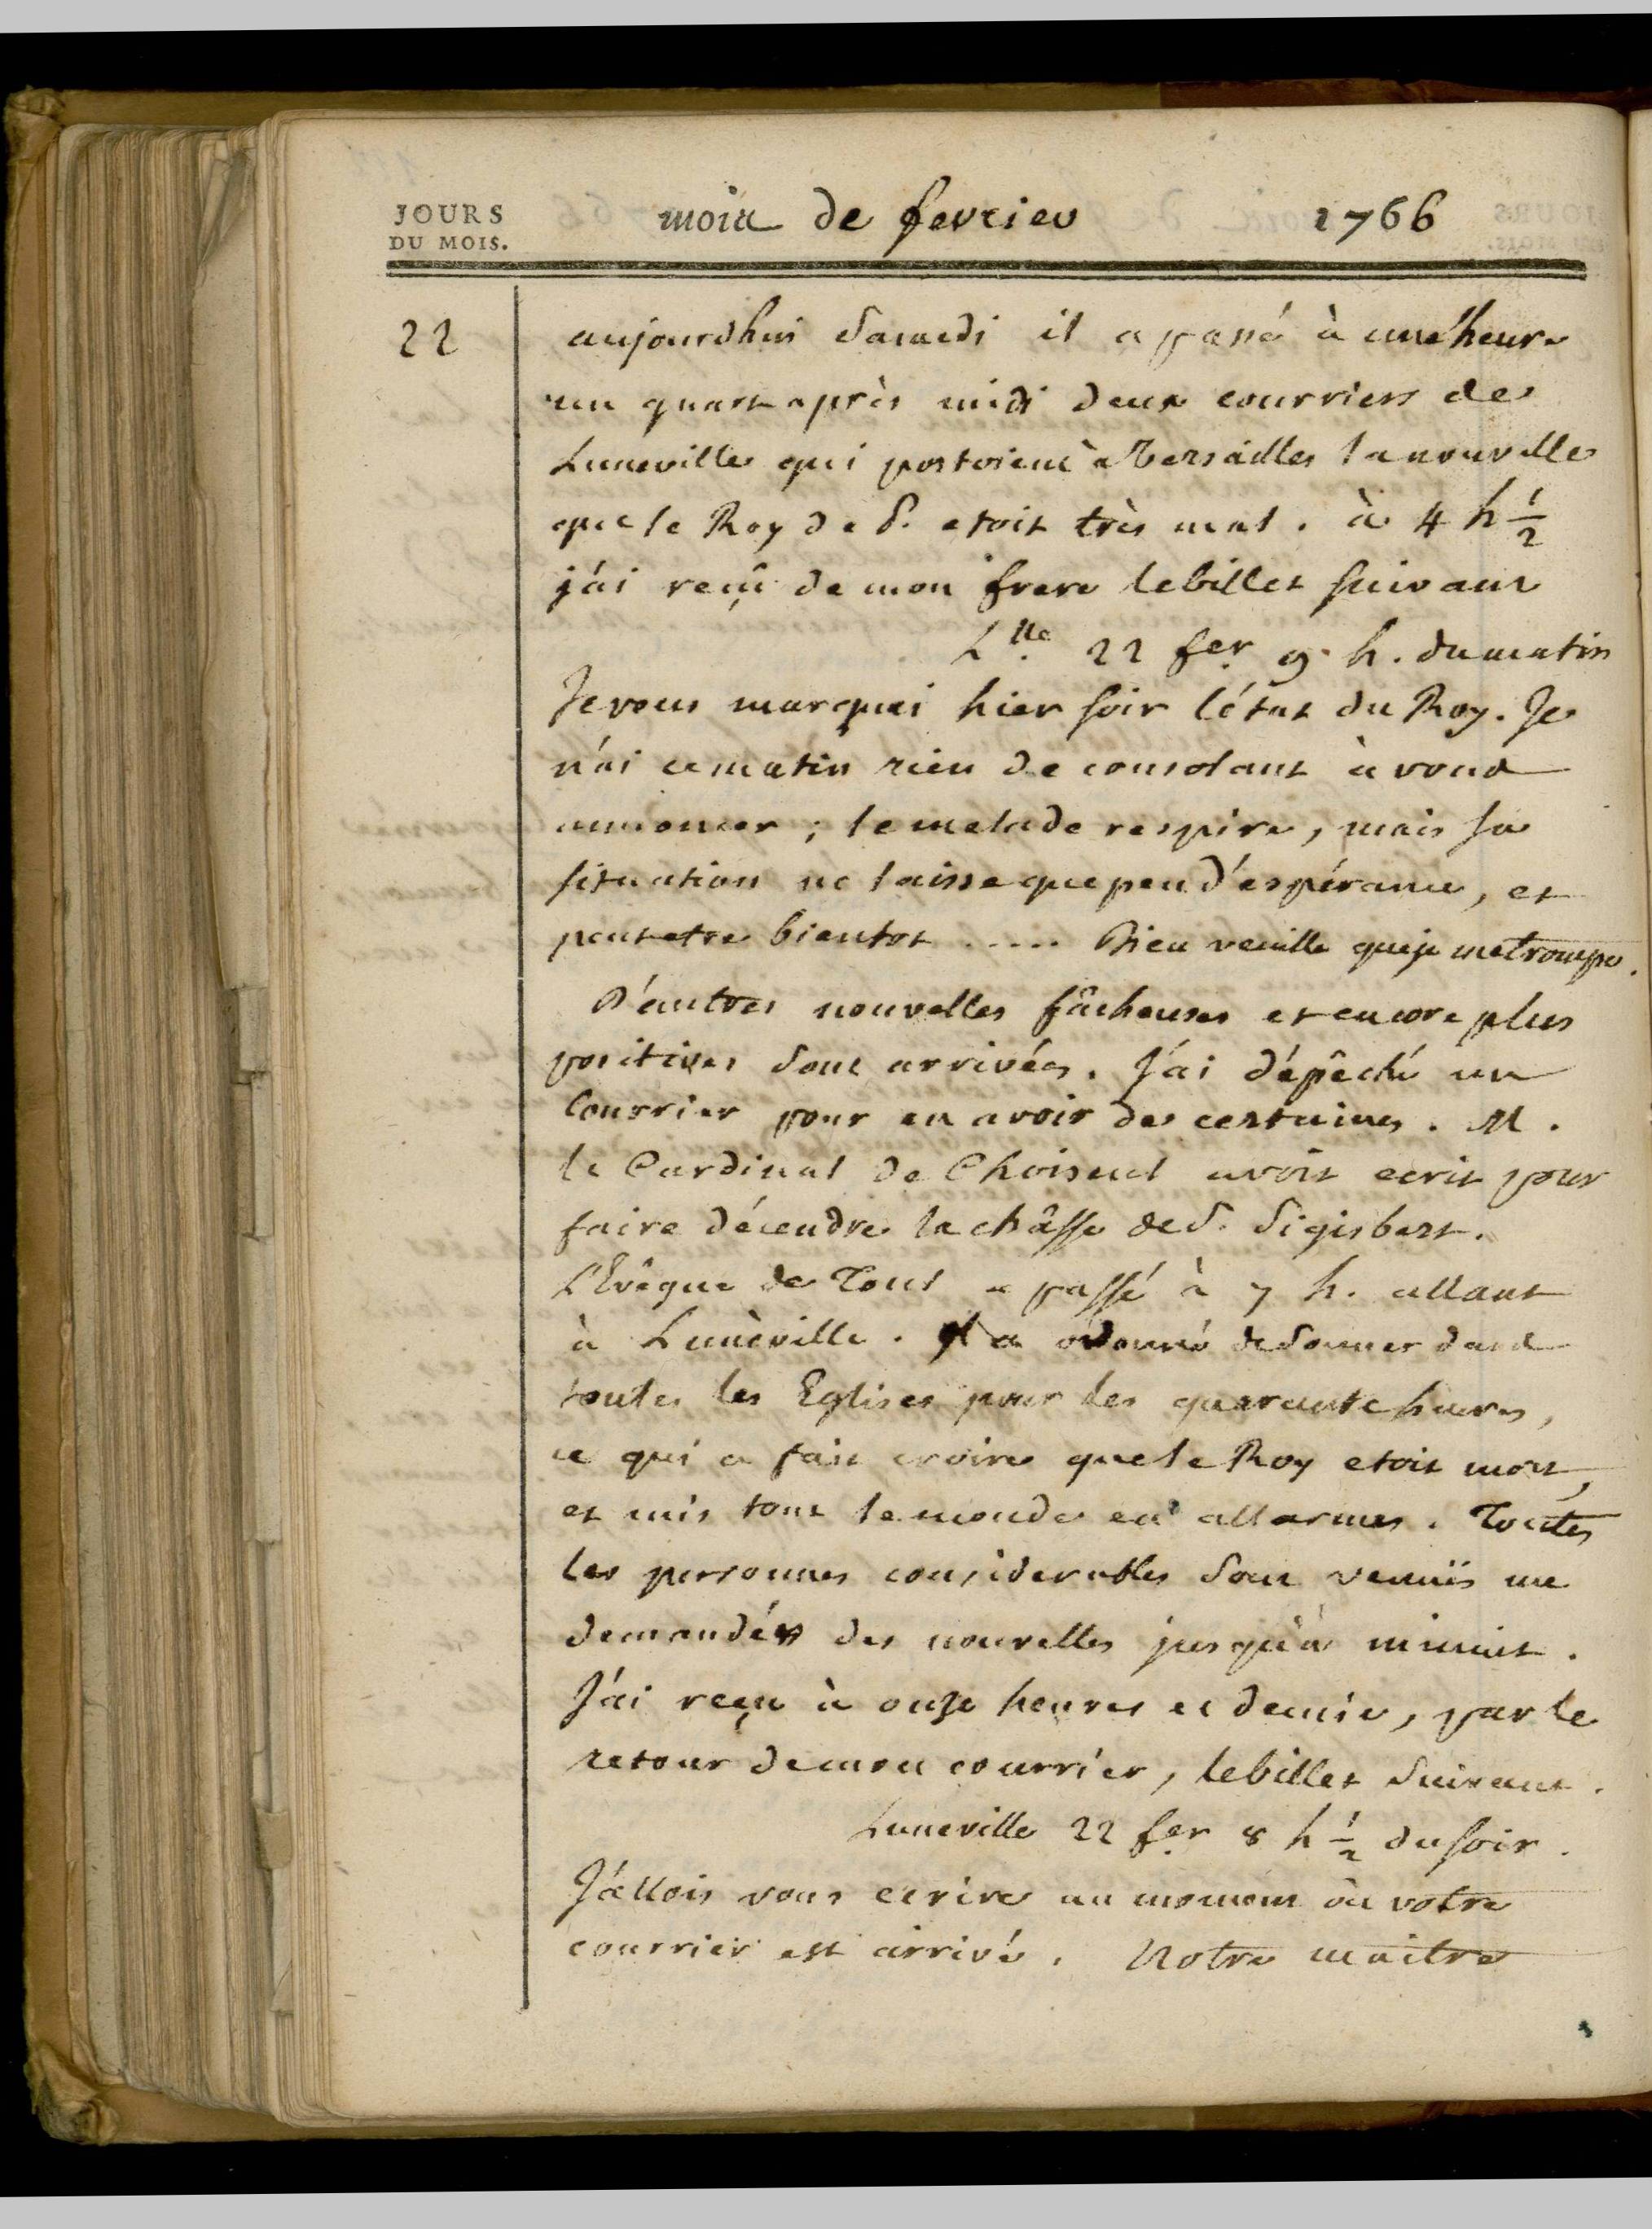 JOURS
DU MOIS.
mois de fevrier 1766
22
aujourdhui Samedi il a passé à une heure
un quart après midi deux courriers de
Luneville qui portoient à Versailles la nouvelle
que le Roy de P. etoit très mal. à 4 h 1/2
j'ai reçû de mon frere le billet suivant
L.lle 22 fer. 9 h. du matin
Je vous marquai hier soir l'état du Roy. Je
n'ai ce matin rien de consolant à vous
annoncer ; le malade respire, mais sa
situation ne laisse que peu d'espérance, et
peut etre bientot ..... Dieu veuille que je me trompe.
D'autres nouvelles fâcheuses et encore plus
positives sont arrivées. J'ai dépêché un
Courrier pour en avoir des certaines. M.
le Cardinal de Choiseul avoit ecrit pour
faire décendre la châsse de S. Sigisbert.
L'Evêque de Toul a passé à 7 h. allant
à Lunéville. Il a ordonné de sonner dans
toutes les Eglises pour les quarante heures,
ce qui a fait croire que le Roy etoit mort,
et mis tout le monde en allarmes. Toutes
les personnes considerables sont venuës me
demander des nouvelles jusqu'à minuit.
J'ai reçu à onze heures et demie, par le
retour de mon courrier, le billet suivant.
Luneville 22 fer. 8 h 1/2 du soir.
J'allois vous ecrire au moment où votre
courrier est arrivé. Notre maitre